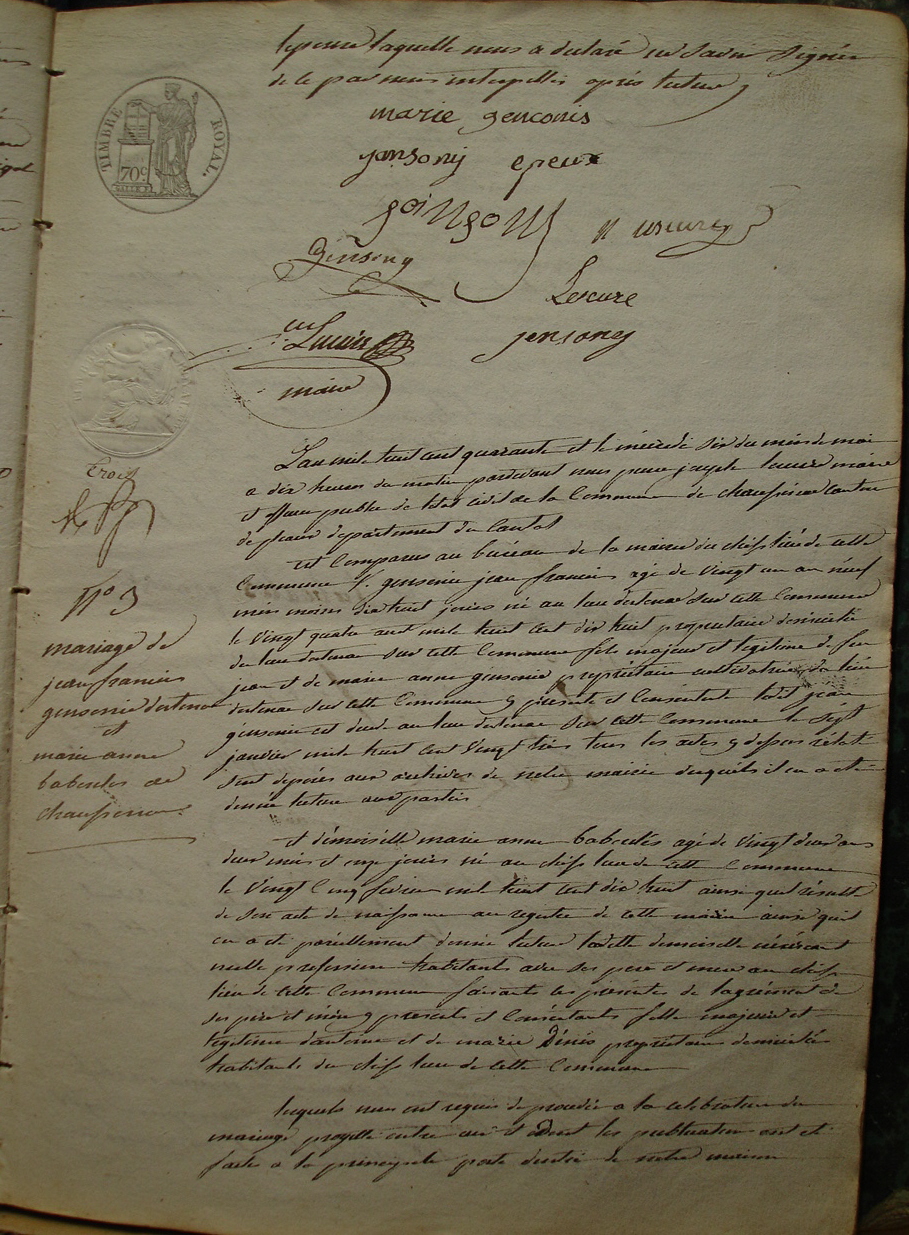 TIMBRE ROYAL.
70c
l'epouse laquelle nous a declaré ne savoir signer
de ce par nous interpellés après lecture
marie gensonis
jansony epeux
goinsony
Lescure
gensony
Lescure
jensoney
maire
Trois
L'an mil huit cent quarante et le mércredi six du mois de mai
a dix heures du matin pardevant nous pierre joseph maire
et officier public de l'état civil de la Commune de chaussenac canton
de pleaux departement du Cantal
est Comparus au buréau de la mairie du cheff lieu de cette
Commune S. gensonie jean francois agé de vingt un an neuf
mois moins dix huit jours né au lieu d'estenac sur cette Commune
le vingt quatre aout mil huit cent dix huit proprietaire domicilié
du lieu d'estenac sur cette Commune fils majeur et legitime de feu
jean et de marie anne gensonie propriétaire cultivatrice du lieu
d'estenac sur cette Commune y présente et Consentente ledit jean
gensonie est décédé au lieu d'estenac sur cette Commune le sept
janvier mil huit cent vingt trois tous les actes y dessus rélaté
sont déposés aux archives de notre mairie desquels il en a été
donné lecture aux parties
N° 3
mariage de
jean francois
gensonie d'estenac
et
marie anne
baboulés de
chaussenac
et démoiselle marie anne baboulés agé de vingt deux ans
deux mois et onze jours né au cheff lieu de cette Commune
le vingt Cinq fevrier mil huit cent dix huit ainsi quil résulte
de son acte de naissance au registre de cette mairie ainsi quil
en a été pareillement donné lecture ladite demoiselle n'éxércent
nulle profession habitante avec ses pere et mere au cheff
lieu de cette Commune faisants les présente de lagrément de
ses père et mère y presents et Consentants fille majeure et
legitime d'antoine et de marie Dénis propriétaires domiciliés
habitants du cheff lieu de cette Commune
lesquels nous ont requis de procéder a la celebration du
mariage projetté entre eux et dont les publications ont été
faites a la principale porte d'entrée de notre maison